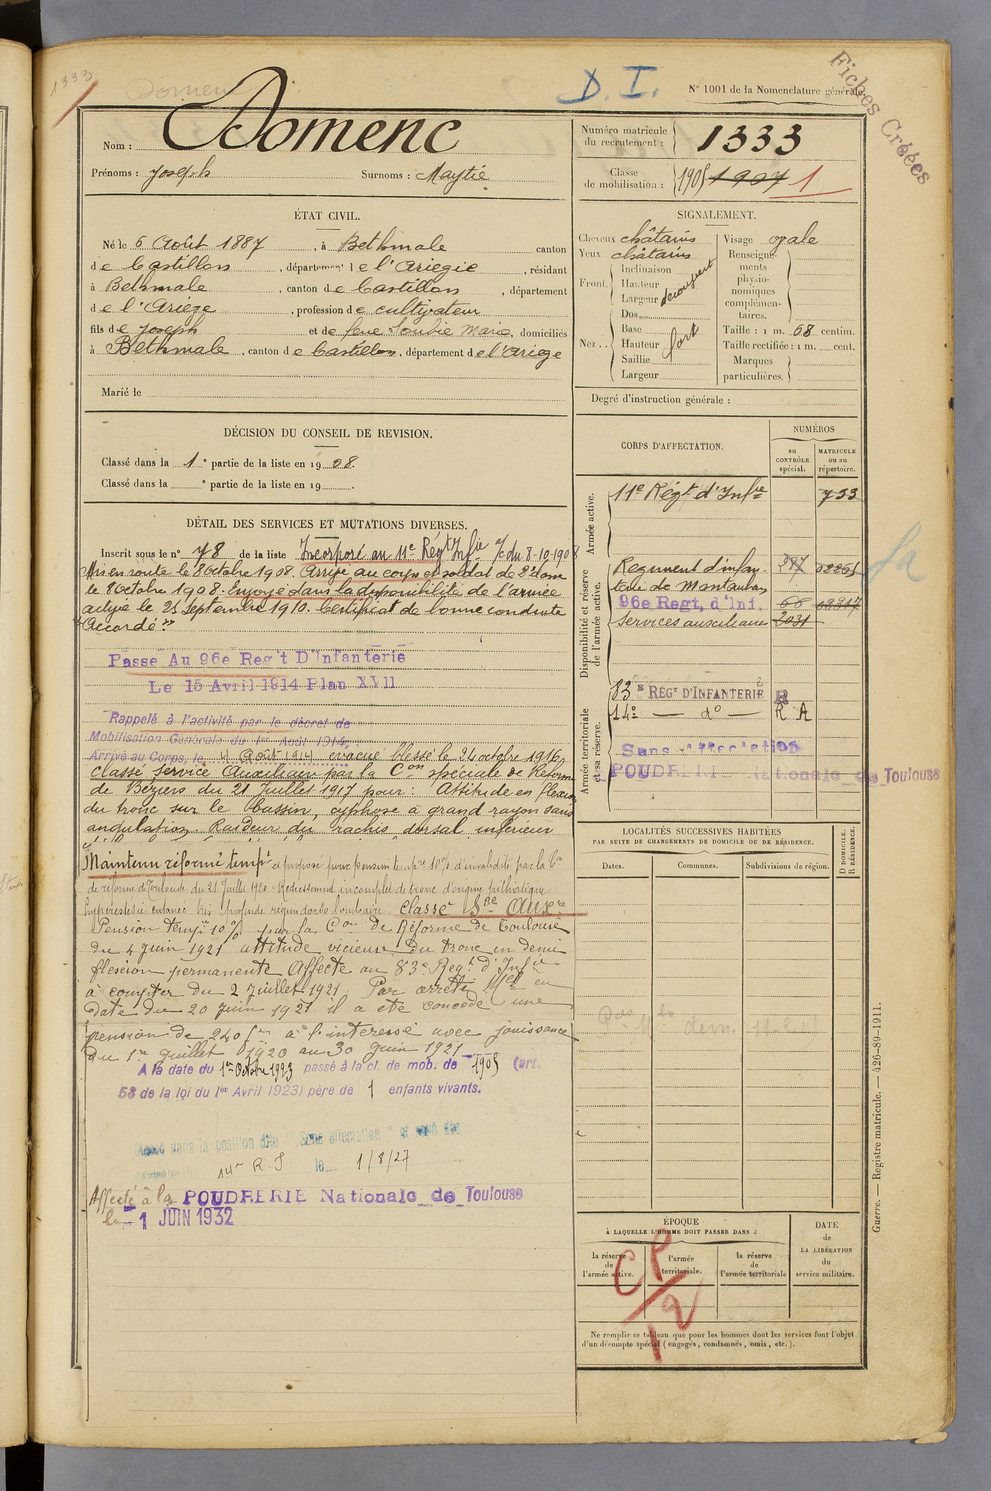 1333
D. I.
N° 1001 de la Nomenclature générale.
Fiches Créées
Nom : Domenc
Prénoms : Joseph Surnoms : Maytié
Numéro matricule du recrutement : 1333
Classe de mobilisation : 1905 1907 1
ÉTAT CIVIL.
Né le 6 Août 1887, à Bethmale canton
de Castillon, département de l'Ariègie, résidant
à Bethmale, canton de Castillon, département
de l'Ariège, profession de cultivateur
fils de Joseph et de feue Soubie Marie, domiciliés
à Bethmale, canton de Castillon, département de l'Ariège
Marié le
SIGNALEMENT.
Cheveux châtains
Yeux châtains
Front.
Inclinaison
Hauteur
Largeur
découvert
Nez..
Dos
Base
Hauteur
Saillie
Largeur
fort
Visage ovale
Renseignements physionomiques complémentaires.
Taille : 1 m. 68 centim.
Taille rectifiée : 1 m. cent.
Marques particulières.
Degré d'instruction générale :
DÉCISION DU CONSEIL DE REVISION.
Classé dans la 1e partie de la liste en 1908.
Classé dans la e partie de la liste en 19 .
DÉTAIL DES SERVICES ET MUTATIONS DIVERSES.
Inscrit sous le n° 78 de la liste Incorporé au 11e Régt Infie %c du 8-10-1908
Mis en route le 8 octobre 1908. Arrivé au corps et soldat de 2e classe
le 8 Octobre 1908. Envoyé dans la disponibilité de l'armée
active le 25 Septembre 1910. Certificat de bonne conduite
"Accordé"
Passé Au 96e Reg't D'Infanterie
Le 15 Avril 1914 Plan XVII
Rappelé à l'activité par le décret de
Mobilisation Générale du 1er Août 1914,
Arrivé au Corps, le 4 Août 1914 évacué blessé le 24 octobre 1916,
classé Service Auxiliaire par la Con spéciale de Réforme
de Béziers du 21 Juillet 1917 pour : Attitude en flexion
du tronc sur le bassin, cyphose à grand rayon sans
angulation. Raideur du rachis dorsal inférieur
Maintenu réformé tempre et proposé pour pension tempre 10% d'invalidité par la Con
de réforme de Toulouse du 21 Juillet 1920 Redressement incomplet de tronc d'origine pithiatique
hyperestésie cutanée très profonde région dorso lombaire. Classé Sce Auxre
Pension tempre 10% par la Con de Réforme de Toulouse
du 4 Juin 1921 attitude vicieuse du tronc en demi
flexion permanente Affecté au 83e Regt d'Infie
à compter du 2 Juillet 1921. Par arrêté Mel en
date du 20 Juin 1921 il a été concédé une
pension de 240 frs à l'intéressé avec jouissance
du 1er Juillet 1920 au 30 Juin 1921
A la date du 1er Octobre 1923 passé à la cl. de mob. de 1905 (art.
58 de la loi du 1er Avril 1923) père de 1 enfants vivants.
Classé dans la position dite "Sans affectation" et rayé des
14e R.I le 1/8/27
Affecté à la POUDRERIE Nationale de Toulouse
le 1 JUIN 1932
CORPS D'AFFECTATION.
NUMÉROS
au CONTRÔLE spécial.
MATRICULE ou au répertoire.
Armée active.
11e Régt d'Infie 753
Disponibilité et réserve de l'armée active.
Régiment d'infan- 02265
terie de Montauban
96e Regt. d'Inf. 66
Services auxiliaires 2031
Armée territoriale et sa réserve.
83e RÉGt D'INFANTERIE R
14e — do — R A
Sans affectation
POUDRERIE Nationale de Toulouse
LOCALITÉS SUCCESSIVES HABITÉES
PAR SUITE DE CHANGEMENTS DE DOMICILE OU DE RÉSIDENCE.
Dates. Communes. Subdivisions de région.
D DOMICILE. R RÉSIDENCE.
ÉPOQUE
À LAQUELLE L'HOMME DOIT PASSER DANS :
la réserve de l'armée active.
l'armée territoriale.
la réserve de l'armée territoriale
DATE de LA LIBÉRATION du service militaire.
CP/12
Ne remplir ce tableau que pour les hommes dont les services font l'objet
d'un décompte spécial (engagés, condamnés, omis, etc.).
Guerre. — Registre matricule. — 426-89-1911.